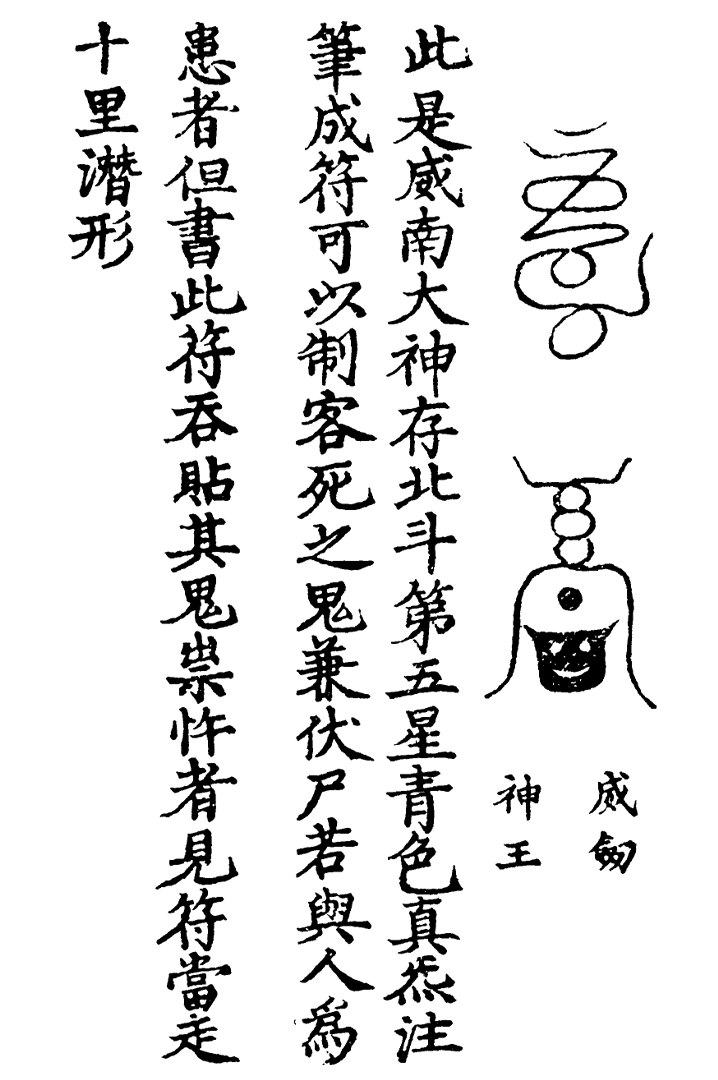 威劒
神王
此是威南大神存北斗第五星青色真炁注
筆成符可以制客死之鬼兼伏尸若與人爲
患者但書此符吞貼其鬼祟忤者見符當走
十里潛形